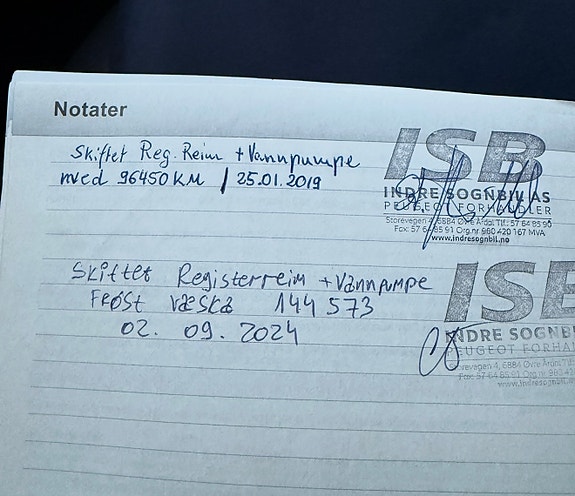 Notater
Skiftet Reg. Reim + Vannpumpe
med 96450 KM / 25.01.2019
ISB
INDRE SOGNBIL AS
PEUGEOT FORHANDLER
Storevegen 4, 6884 Øvre Årdal Tlf.: 57 64 85 90
Fax: 57 64 85 91 Org.nr. 980 420 167 MVA
www.indresognbil.no
Skiftet Registerreim + Vannpumpe
Frøst Væska 144 573
02. 09. 2024
ISB
INDRE SOGNBIL
PEUGEOT FORHAN
Storevegen 4, 6884 Øvre Årdal
Fax: 57 64 85 91 Org.nr. 980 42
www.indresognbil